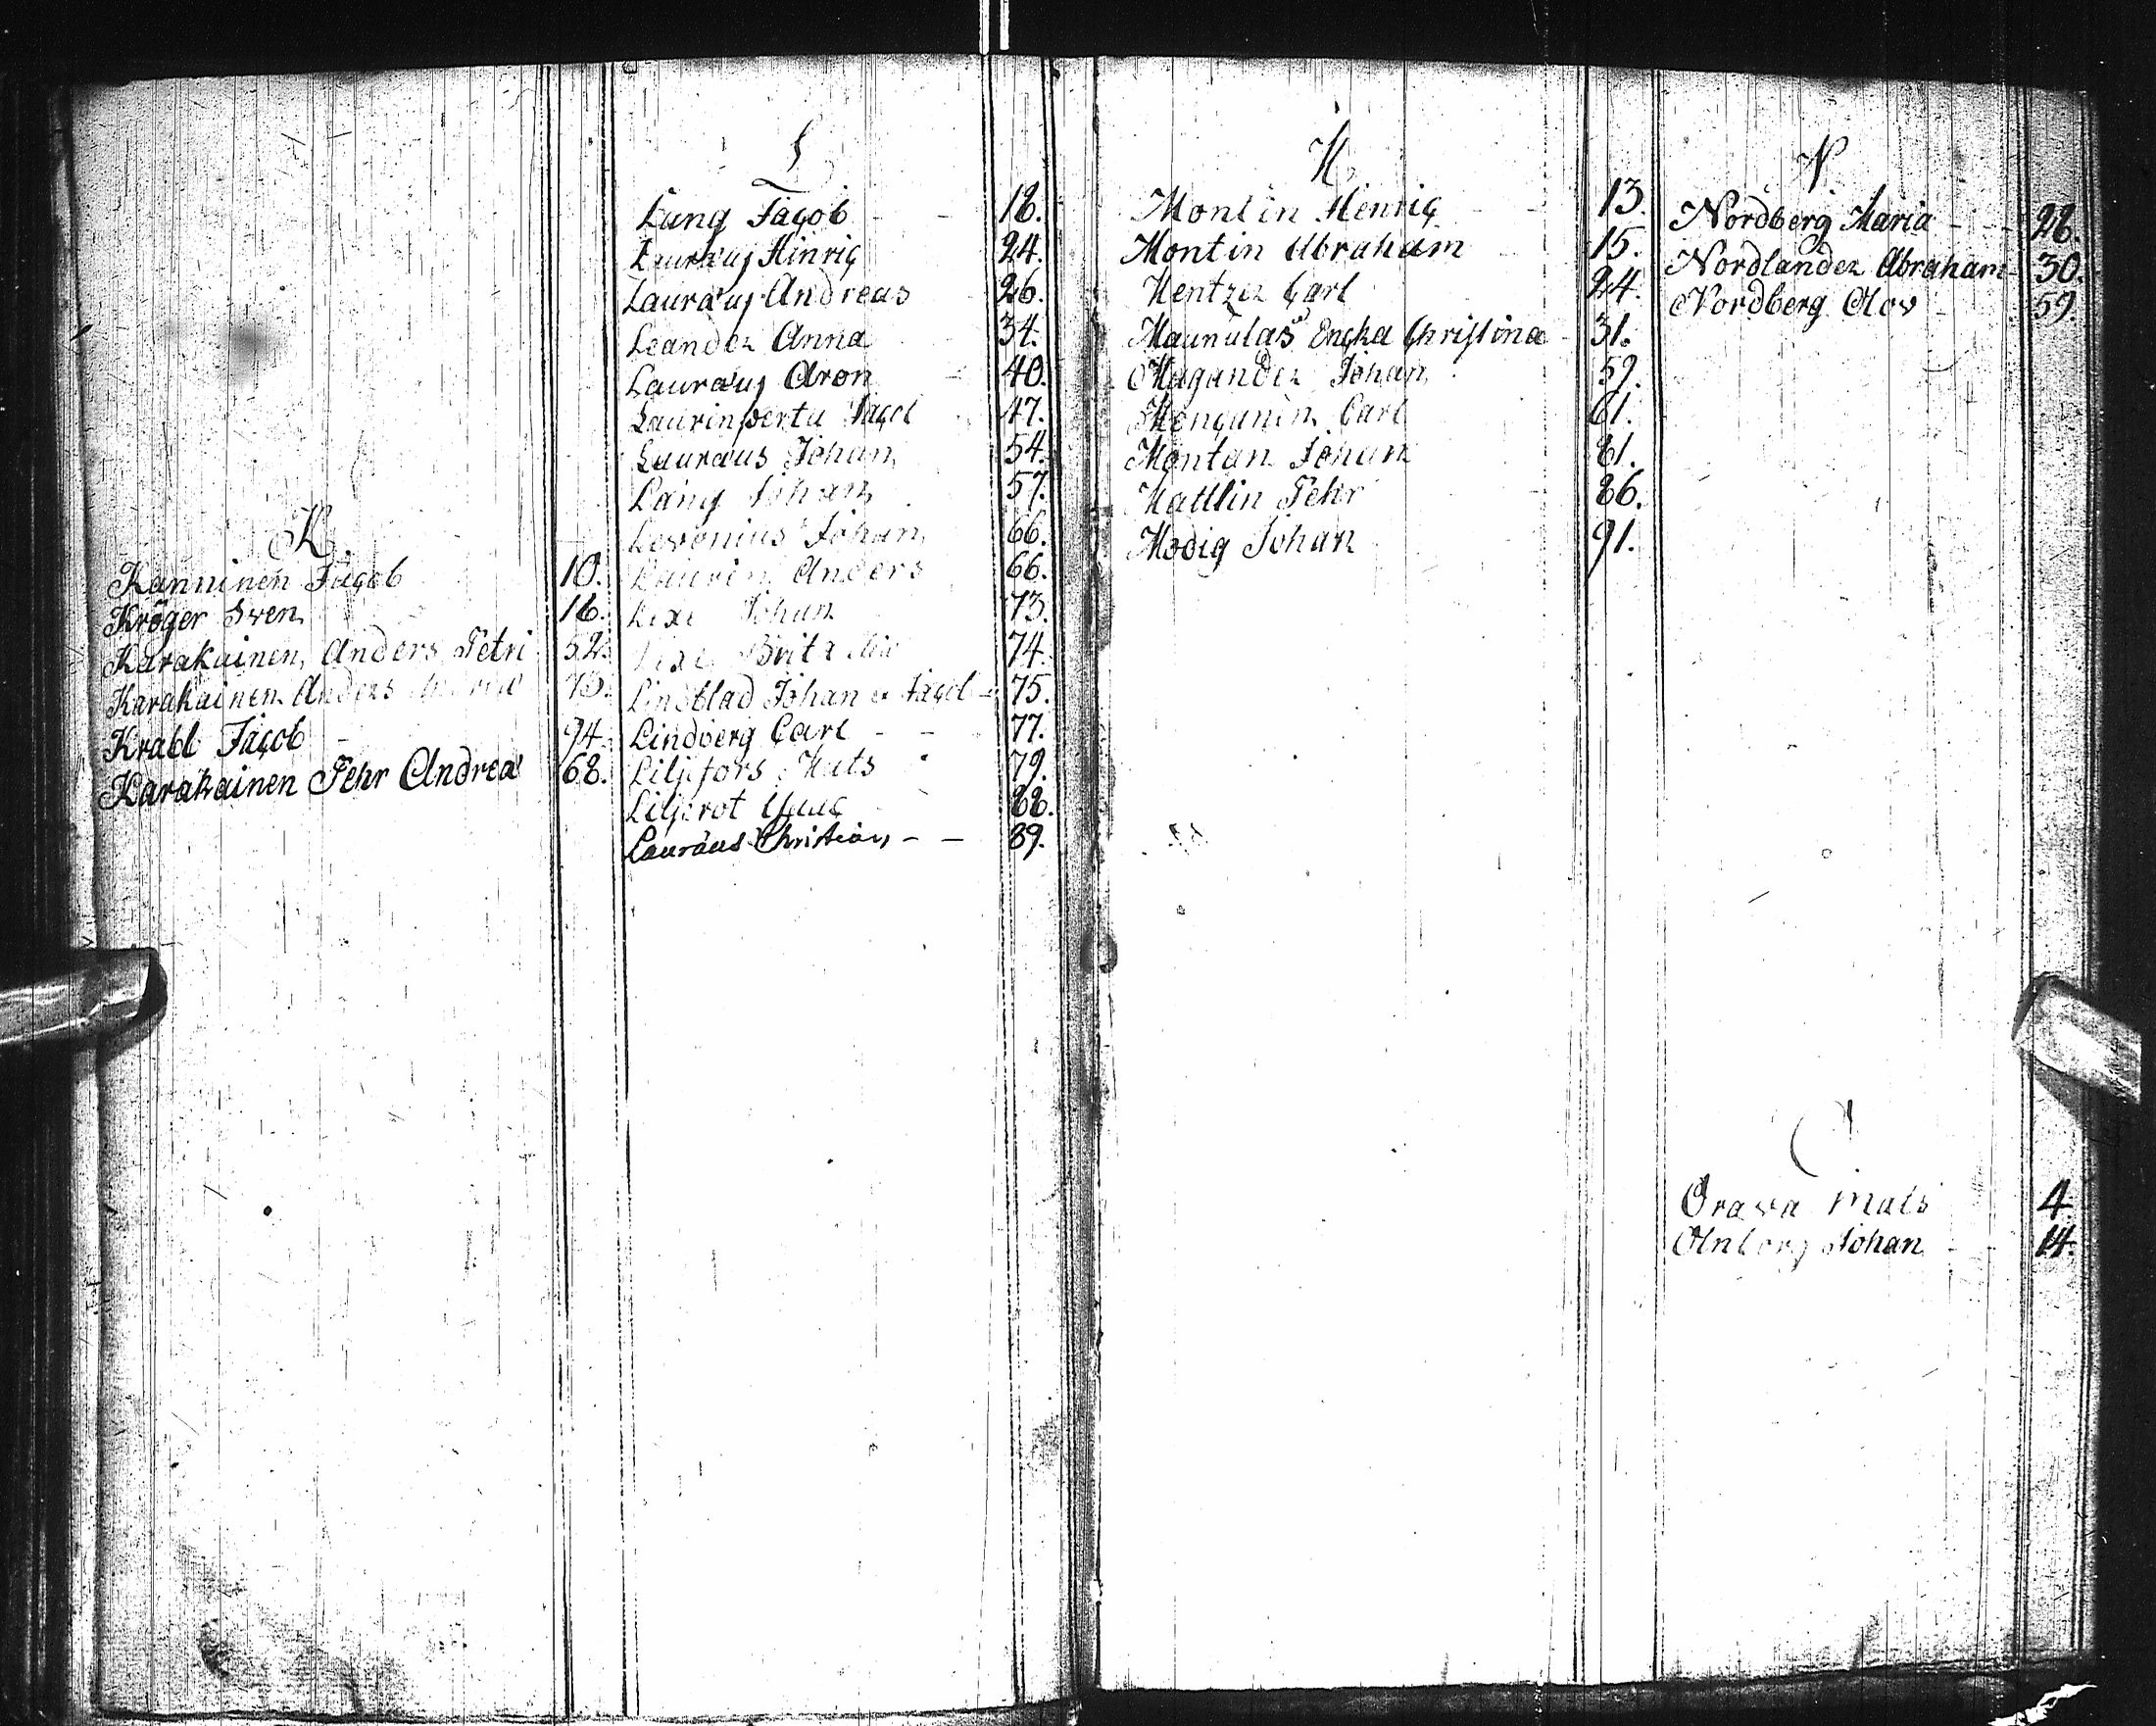 K.
Kanninen Jacob 10.
Kröger Sven 16.
Karakainen Anders Petri 52.
Karakainen Anders
Krabb Jacob 94.
Karakainen Pehr Andreæ 68.
L
Lang Jacob 18.
Lauræus Hinric 24.
Lauræus Andreas 26.
Leander Anna 34.
Lauræus Aron 40.
Laurinpertu Jacob 47.
Lauræus Johan 54.
Lang Johan 57.
Levonius Johan 66.
Laurin Anders 66.
Lixe Johan 73.
Lixe Brita 74.
Lindblad Johan & Jacob 75.
Lindberg Carl 77.
Liljefors Mats 79.
Liljerot Isaac 88.
Lauræus Christian 89.
M.
Montin Henric 13.
Montin Abraham 15.
Mentzer Carl 24.
Maunulas Encka Christina 31.
Magander Johan 59.
Carl 61.
Montan Johan 81.
Mattlin Pehr 86.
Modig Johan 91.
N.
Nordberg Maria 28.
Nordlander Abraham 30.
Nordberg Olov 59.
O.
Orava Mats 4.
Johan 14.